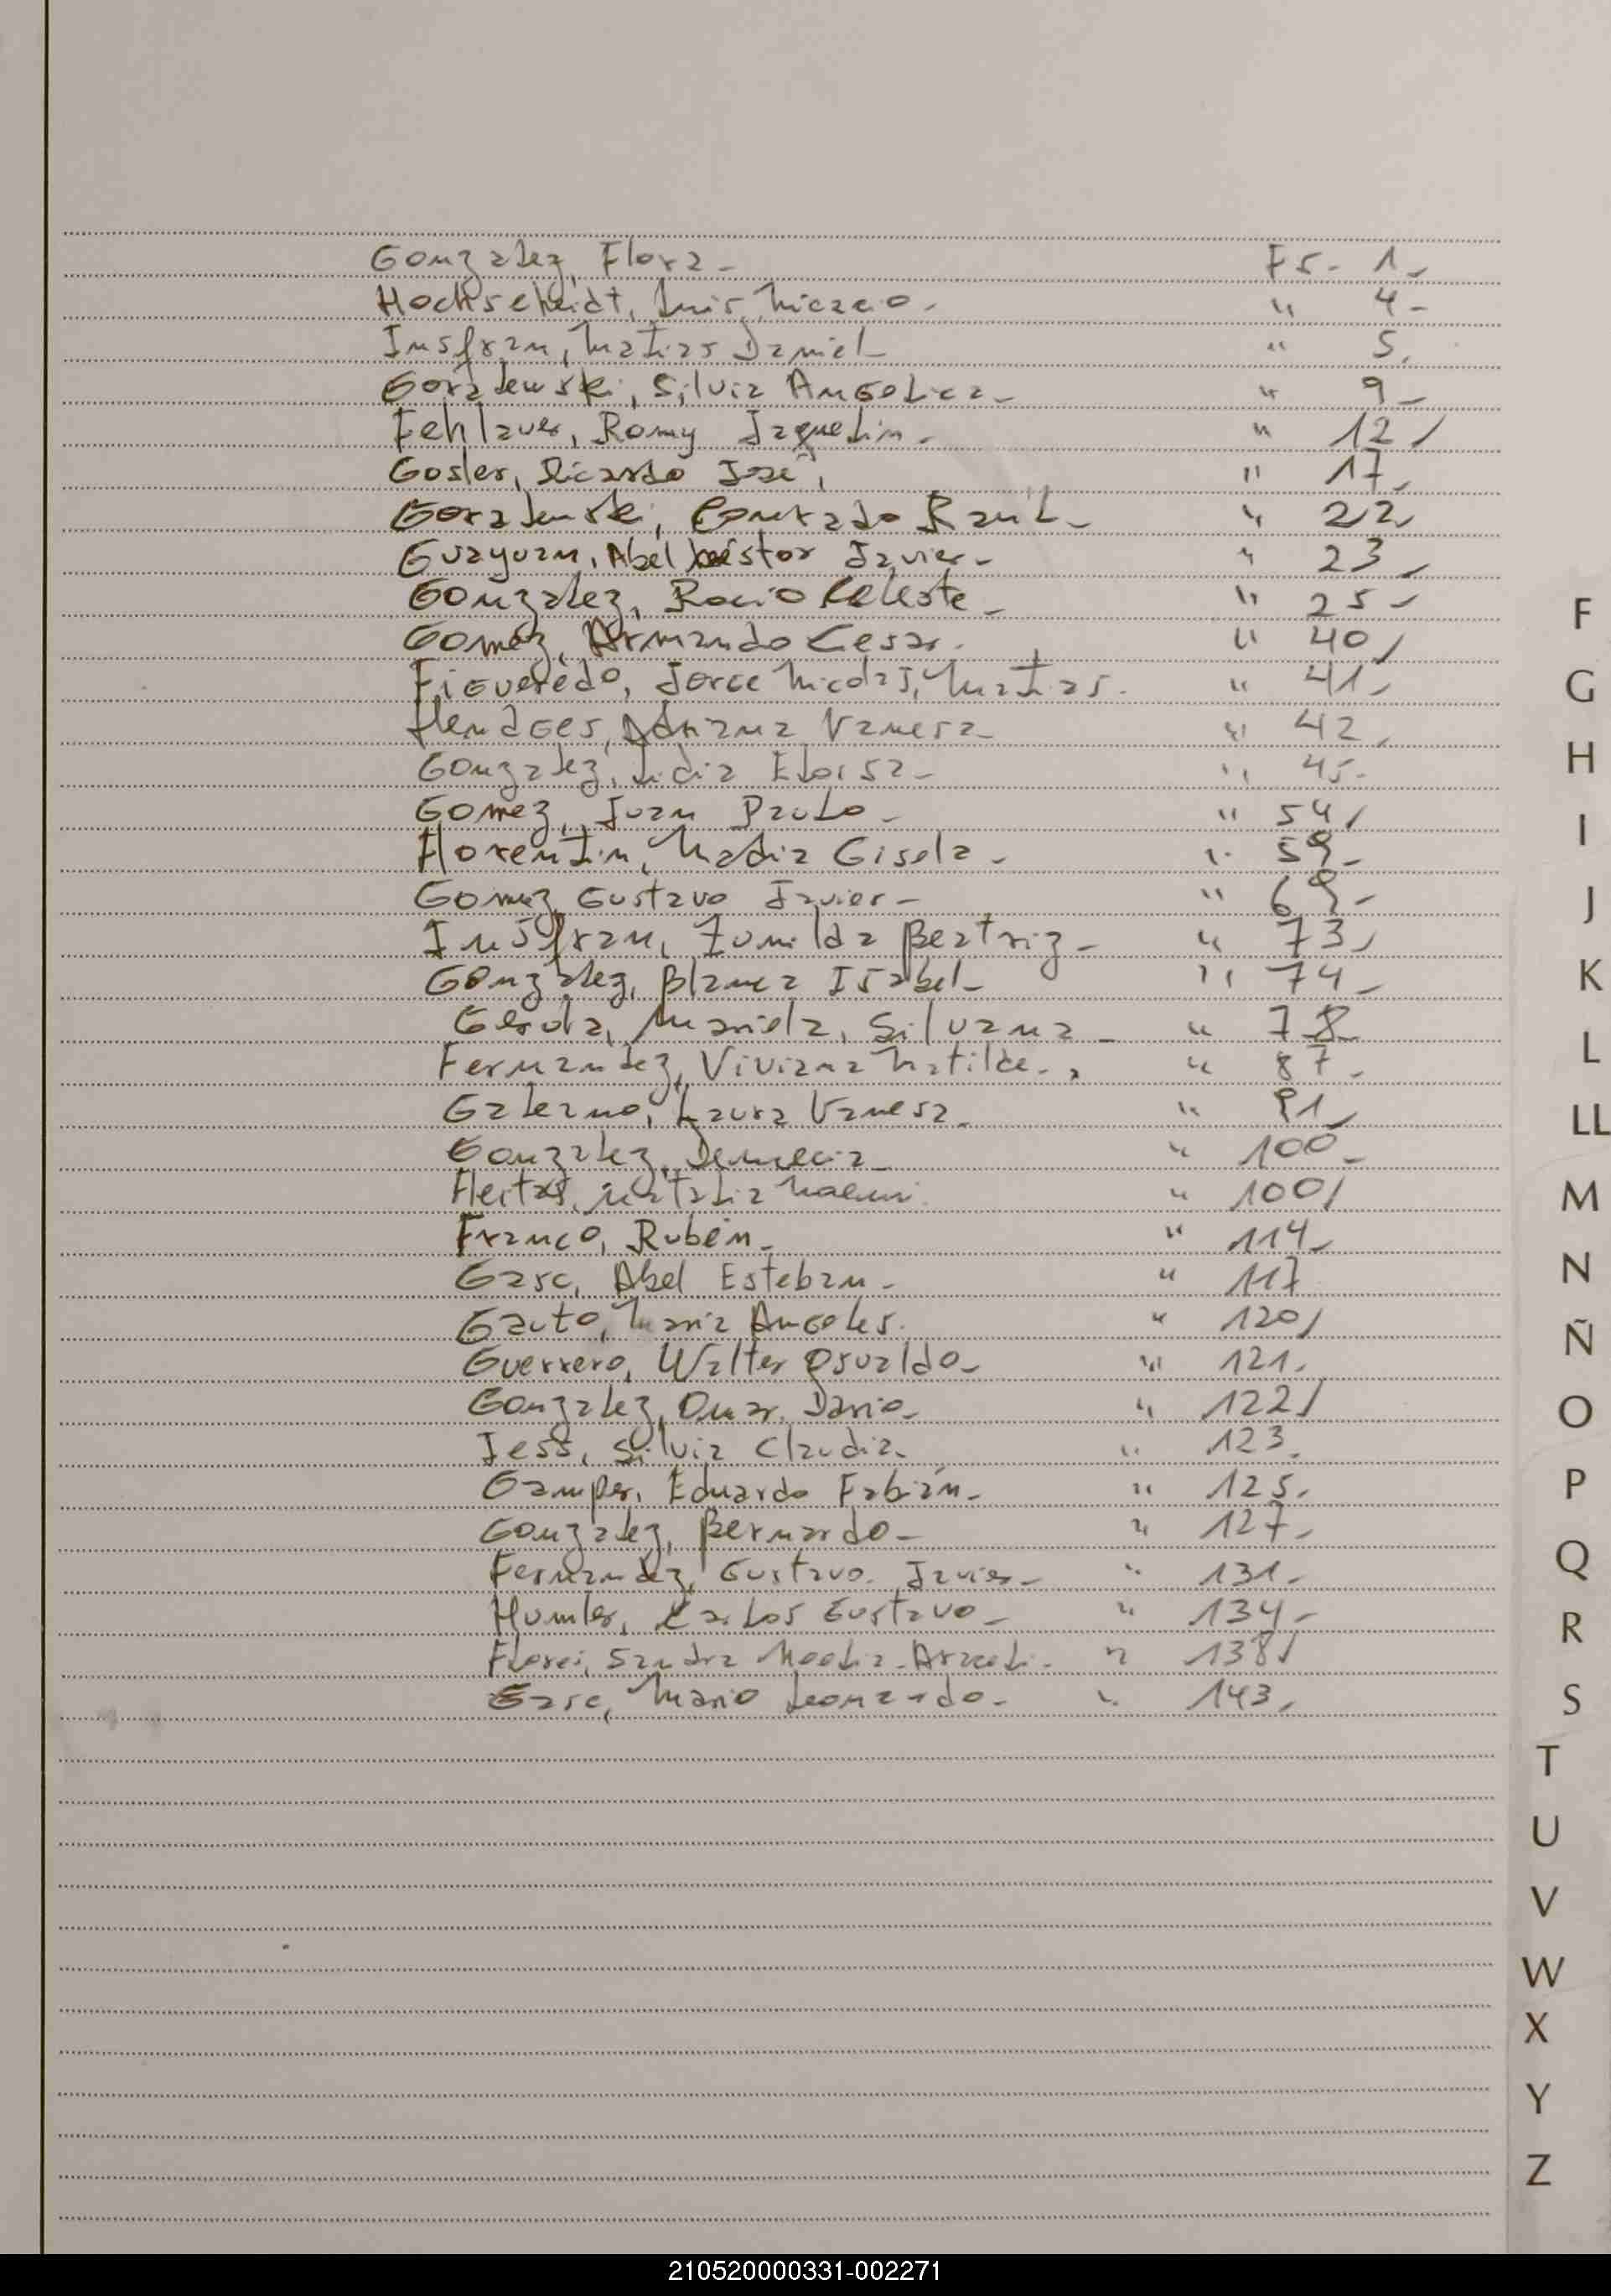 Gonzalez, Flora - Fs. 1 -
Hochscheidt, Luis Nicacio - " 4 -
Insfran, Matias Daniel " 5.
Goralewski, Silvia Angelica - " 9 -
Fehlauer, Romy Jaquelin - " 12 /
Gosler, Ricardo José, " 17 -
Goralewski, Conrado Raul - " 22 -
Guayuan, Abel Néstor Javier - " 23 -
Gonzalez, Rocio Celeste - " 25 -
Gomez, Armando Cesar. " 40 /
Figueredo, Jorge Nicolas, Matias. " 41 -
Hendges, Adriana Vanesa - " 42 -
Gonzalez, Lidia Eloisa - " 45 -
Gomez, Juan Paulo - " 54 /
Florentin, Nadia Gisela - " 59 -
Gomez, Gustavo Javier - " 69 -
Insfran, Zunilda Beatriz - " 73 -
Gonzalez, Blanca Isabel - " 74 -
Gerola, Mariela, Silvana - " 78 -
Fernandez, Viviana Matilde - " 87 -
Galeano, Laura Vanesa - " 91 -
Gonzalez, " 100 -
Natalia Noemi. " 100 /
Franco, Rubén - " 114 -
Gasc, Abel Esteban - " 117
Gauto, Maria Angeles. " 120 /
Guerrero, Walter Osvaldo - " 121.
Gonzalez, Omar. Dario - " 122 /
Jess, Silvia Claudia. " 123.
Gamper, Eduardo Fabián - " 125 -
Gonzalez, Bernardo - " 127 -
Fernandez, Gustavo. Javier - " 131 -
Humler, Carlos Gustavo - " 134 -
Sandra Noelia Araceli. " 138 /
Gasc, Mario Leonardo - " 143 -
F
G
H
I
J
K
L
LL
M
N
Ñ
O
P
Q
R
S
T
U
V
W
X
Y
Z
210520000331-002271